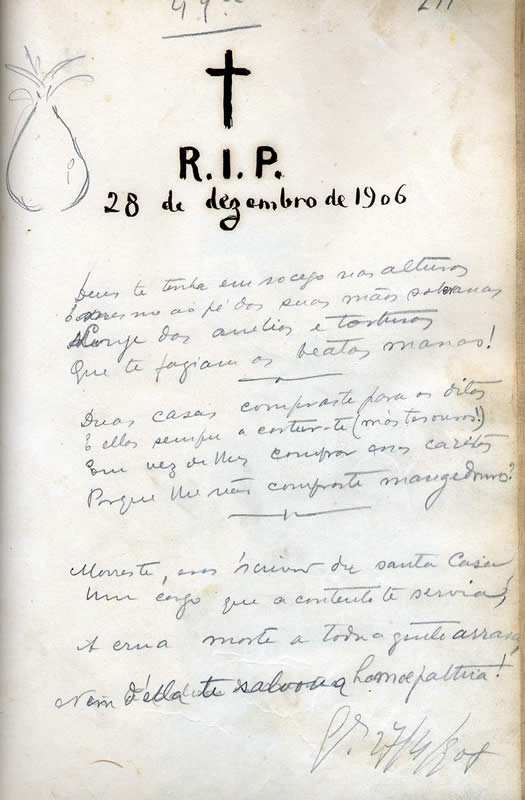 R.I.P.
28 de dezembro de 1906
Deus te tenha em socego nas alturas
ao pé das suas mãos soberanas
Longe dos anelios e torturas
Que te faziam as beatas manas!
Duas casas compraste para os ditos
E ellas sempre a cortar-te (más tesouras!)
Em vez de lhes comprar casas
Porque lhe não compraste mangedouras?
Morreste, eras 'scrivão da santa Casa
Um cargo que a contento te servia;
A crua morte a toda a gente arrasa,
Nem d'ella te salvou a homoepathia!
27/4/908